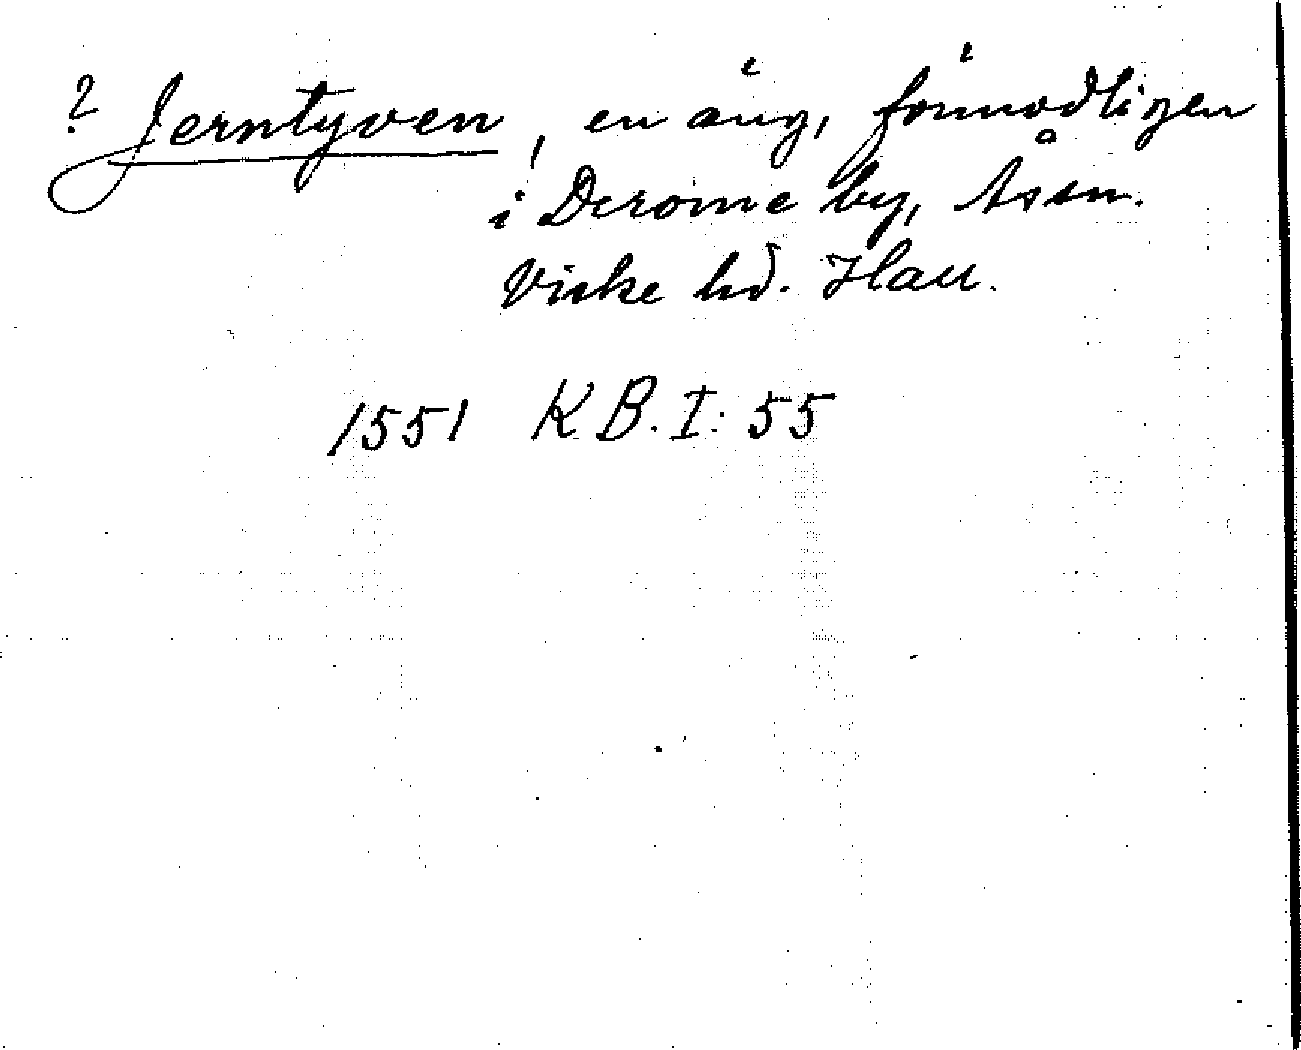 ? Jerntyven, en äng, förmodligen
! i Derome by, Ås sn.
Viske hd. Hall.
1551 KB. I: 55